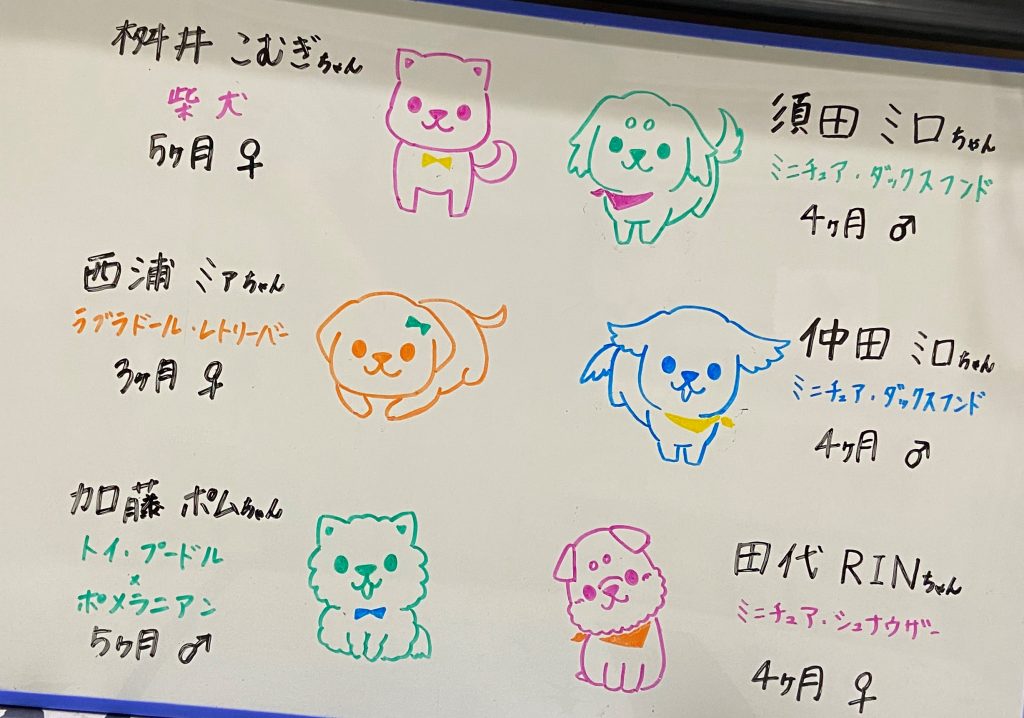 桝井 こむぎちゃん
柴犬
5ヶ月 ♀
西浦 ミアちゃん
ラブラドール・レトリーバー
3ヶ月 ♀
加藤 ポムちゃん
トイ・プードル
×
ポメラニアン
5ヶ月 ♂
須田 ミロちゃん
ミニチュア・ダックスフンド
4ヶ月 ♂
仲田 ミロちゃん
ミニチュア・ダックスフンド
4ヶ月 ♂
田代 RINちゃん
ミニチュア・シュナウザー
4ヶ月 ♀